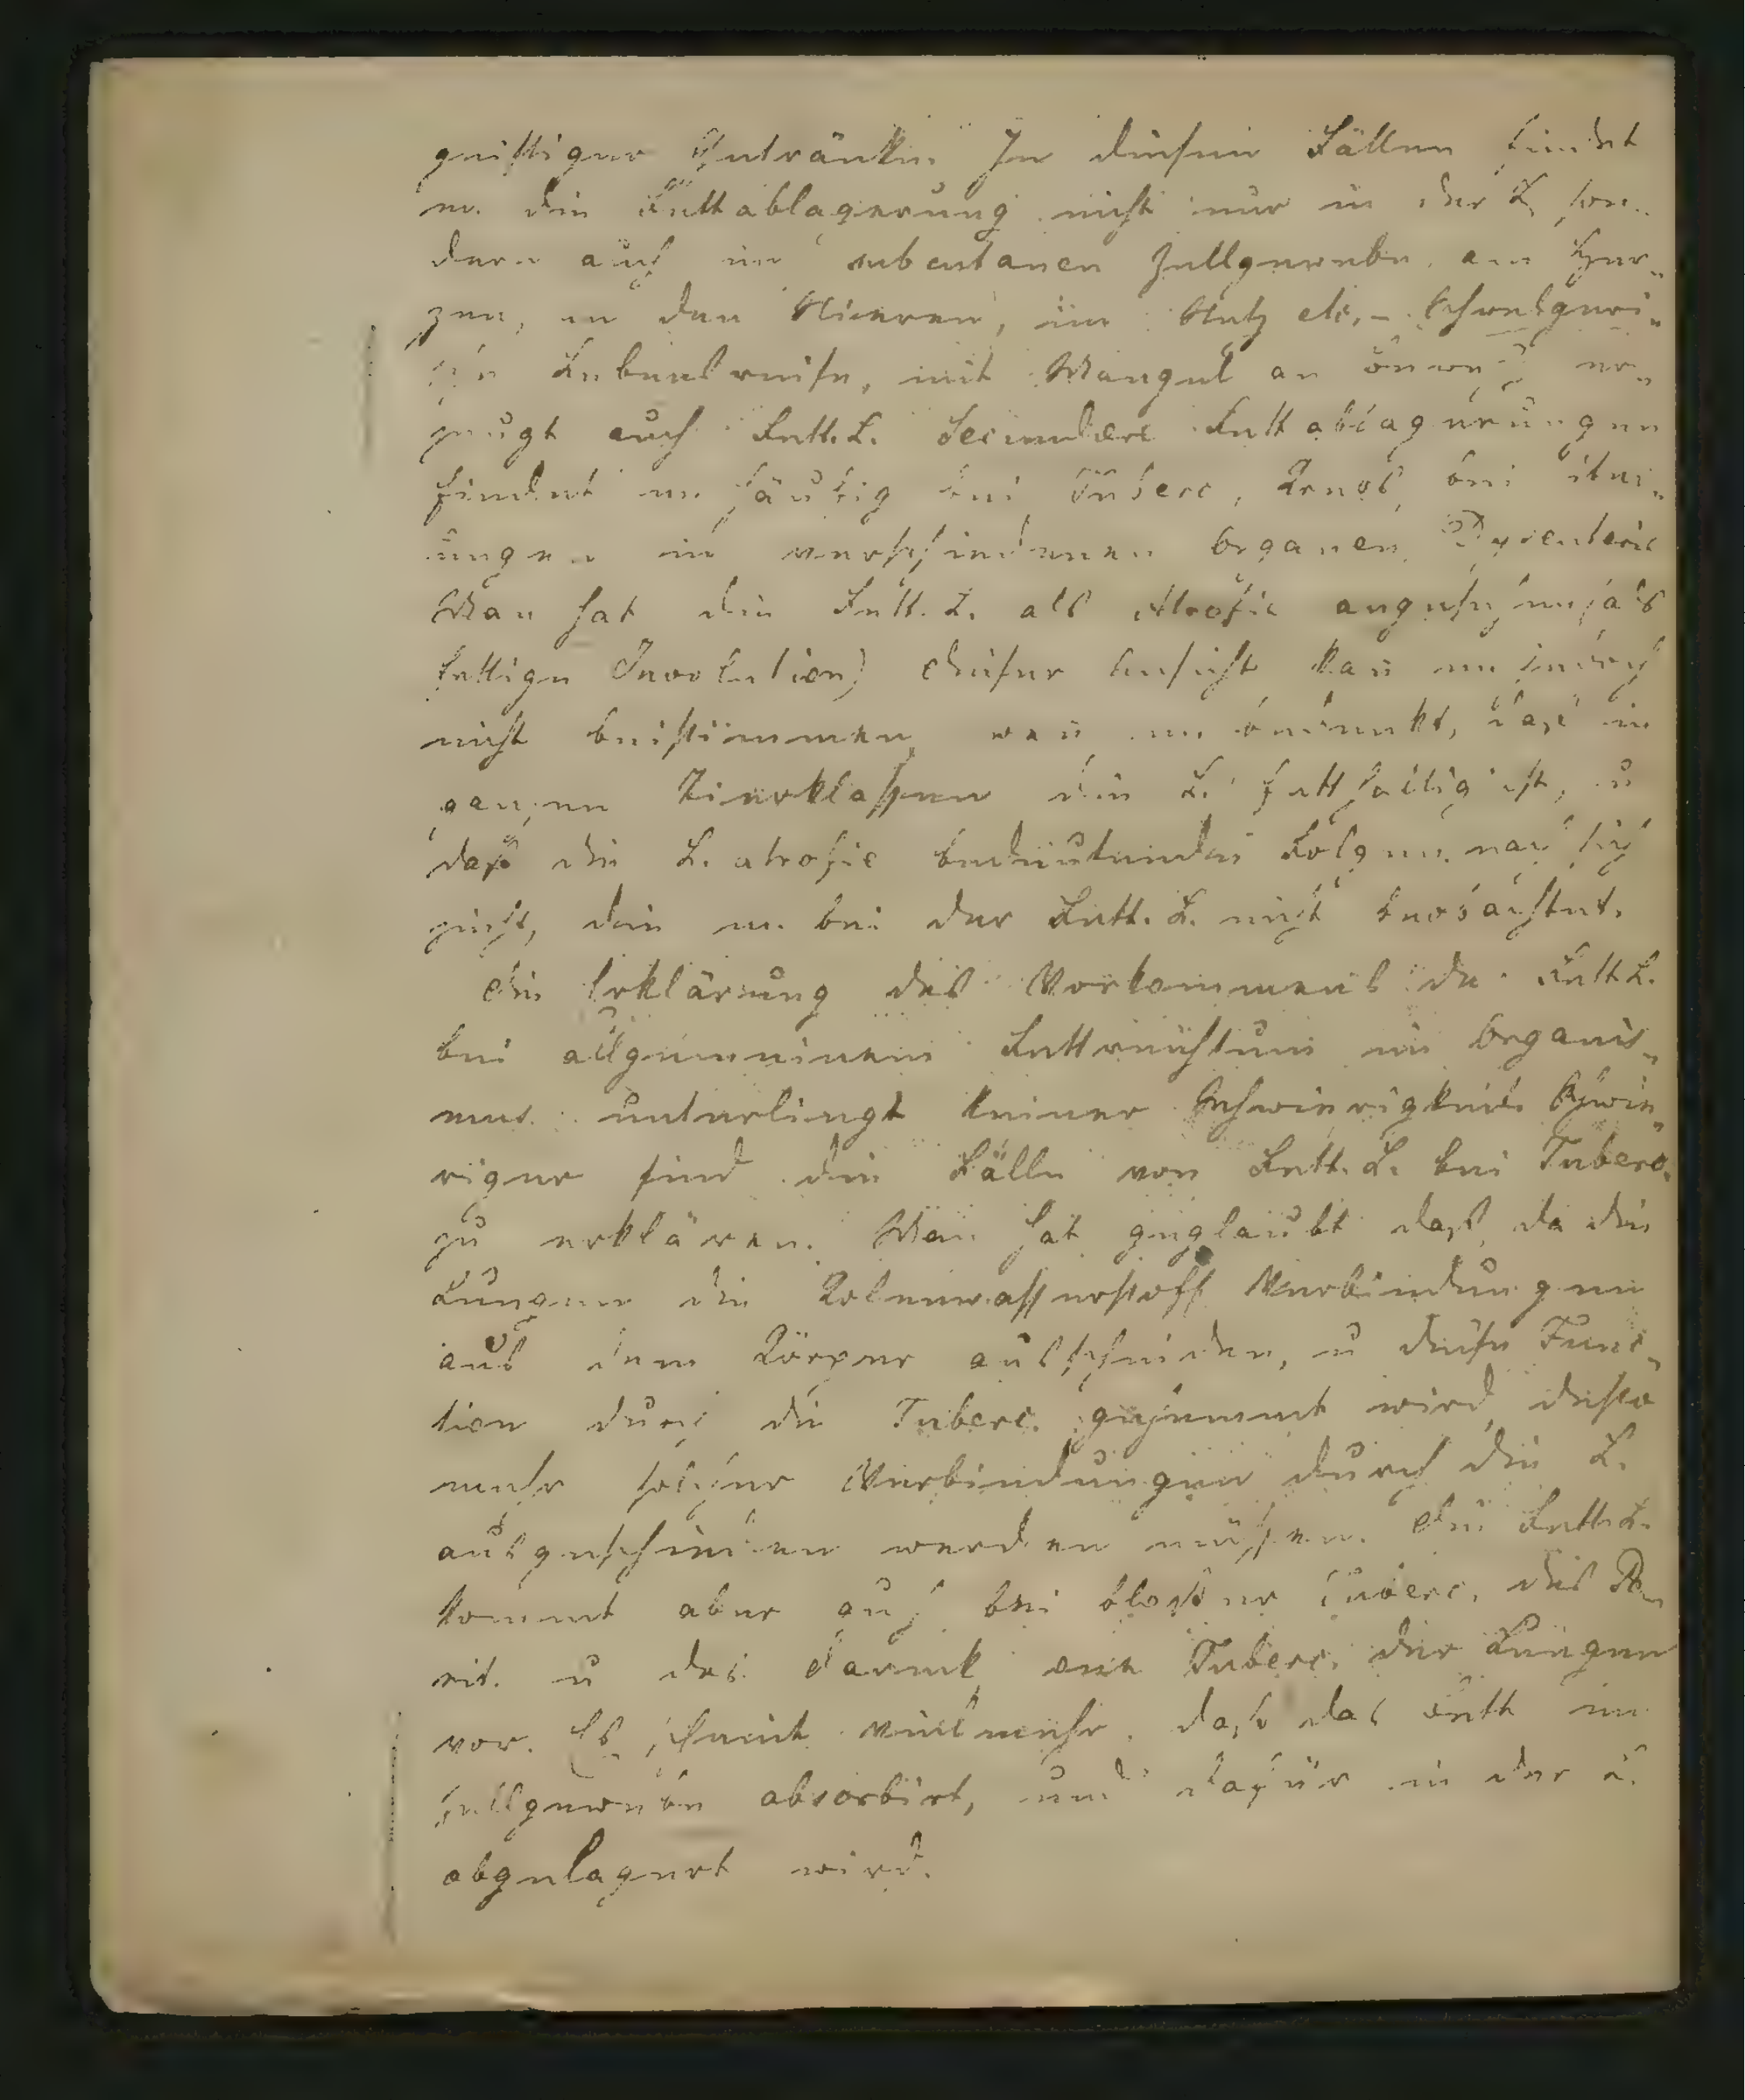 geistiger Getränke. In diesen Fällen findet
m. die Fettablagerung nicht nur in der L. son-
dern auch im subcutanen Zellgewebe, am Her-
zen, an den Nieren, im Netz etc. – Schwelgeri-
sche Lebensweise, mit Mangel an Beweg. er-
zeugt auch Fett.L. Secundäre Fettablagerungen
findet m. häufig bei Tuberc., Krebs, bei Eite-
rungen in verschiedenen Organen, Dysenterie
Man hat die Fett.L. als Atrofie angesehen (als
fettige Involution) dieser Ansicht kan̄ m. jedoch
nicht beistimmen, wen̄ m. bedenkt, daß in
ganzen Tierklassen die L. fetthaltig ist, u
daß die L. atrofie bedeutende Folgen nach sich
zieht, die m. bei der Fett.L. nicht beobachtet.
Die Erklärung des Vorkommens der Fett L.
bei allgemeinem Fettreichtum im Organis-
mus unterliegt keiner Schwierigkeit. Schwie-
riger sind die Fälle von Fett.L. bei Tuberc.
zu erklären. Man hat geglaubt daß, da die
Lungen die Kolenwasserstoff Verbindungen
aus dem Körper ausscheiden, u diese Func-
tion durch die Tuberc. gehemmt wird, desto
mehr solcher Verbindungen durch die L.
ausgeschieden werden müssen. Die Fett.L.
kommt aber auch bei bloßer Tuberc. des Pe-
rit. u des Darmk. one Tuberc. der Lungen
vor. Es scheint vielmehr, daß das Fett im
Zellgewebe absorbirt, und dafür in der L.
abgelagert wird.